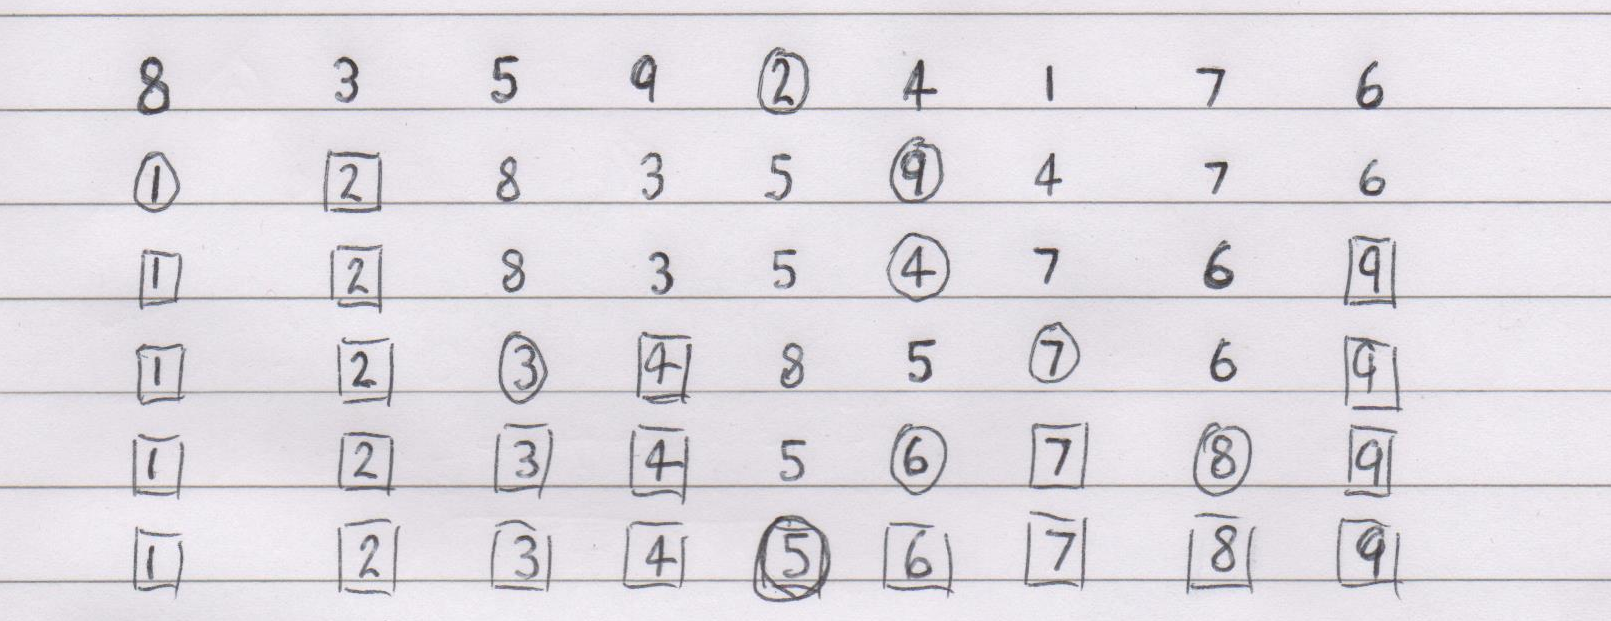 8 3 5 9 2 4 1 7 6
1 2 8 3 5 9 4 7 6
1 2 8 3 5 4 7 6 9
1 2 3 4 8 5 7 6 9
1 2 3 4 5 6 7 8 9
1 2 3 4 5 6 7 8 9